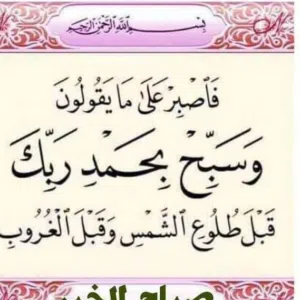 بِسْمِ اللَّهِ الرَّحْمَٰنِ الرَّحِيمِ
فَٱصْبِرْ عَلَىٰ مَا يَقُولُونَ
وَسَبِّحْ بِحَمْدِ رَبِّكَ
قَبْلَ طُلُوعِ ٱلشَّمْسِ وَقَبْلَ ٱلْغُرُوبِ
صباح الخير